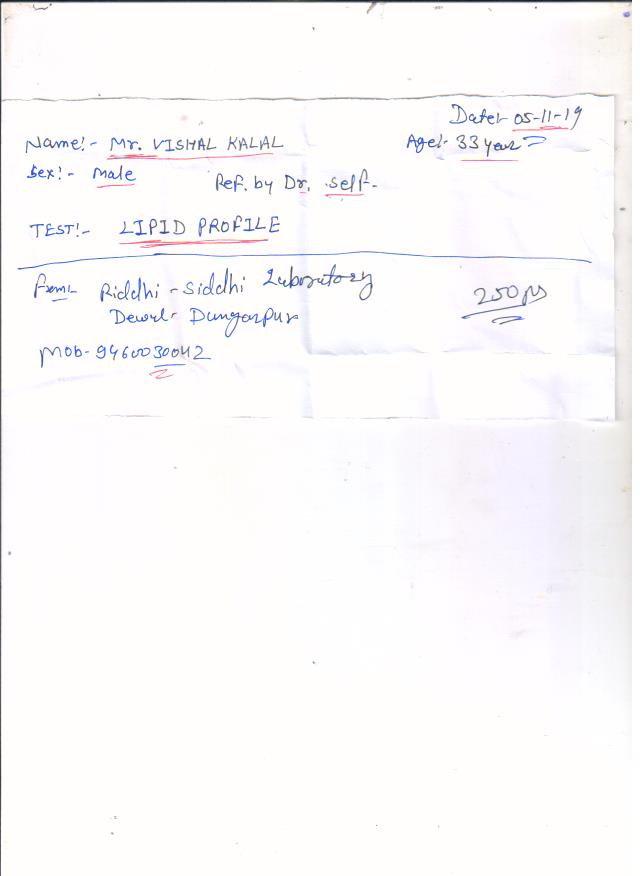 Date:- 05-11-19
Name:- Mr. VISHAL KALAL
Age:- 33 year
Sex:- Male
Ref. by Dr. self-
TEST:- LIPID PROFILE
From:- Riddhi-Siddhi Laboratory
Dewal- Dungarpur
Mob- 9460030042
250